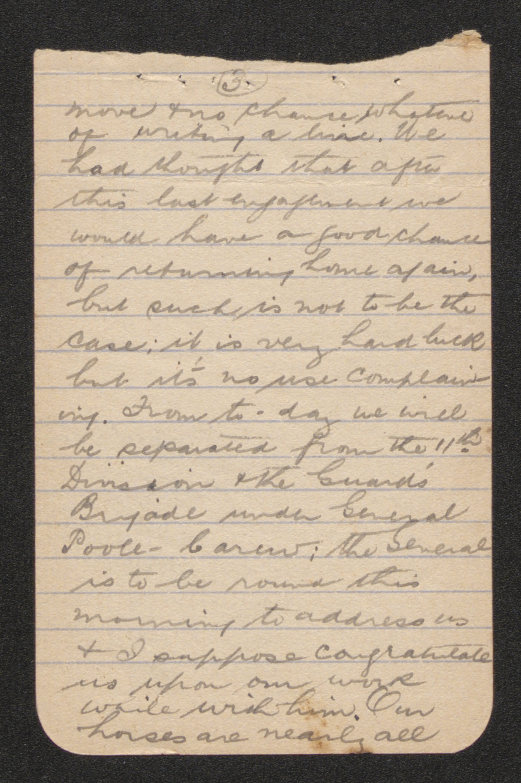 3.
move & no chance whatever
of writing a line. We
had thought that after
this last engagement we
would have a good chance
of returning home again,
but such, is not to be the
case; it is very hard luck
but it's no use complain-
ing. From to-day we will
be separated from the 11th
Division & the Guards'
Brigade under General
Poole-Carew; the General
is to be round this
morning to address us
& I suppose congratulate
us upon our work
while with him. Our
horses are nearly all